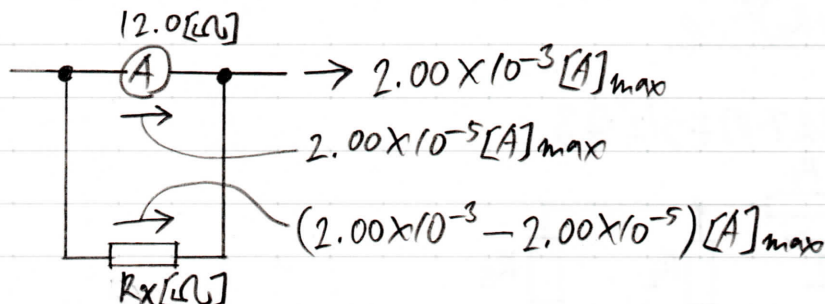 12.0[Ω]
A
2.00×10⁻³[A]max
2.00×10⁻⁵[A]max
(2.00×10⁻³ − 2.00×10⁻⁵)[A]max
Rx[Ω]